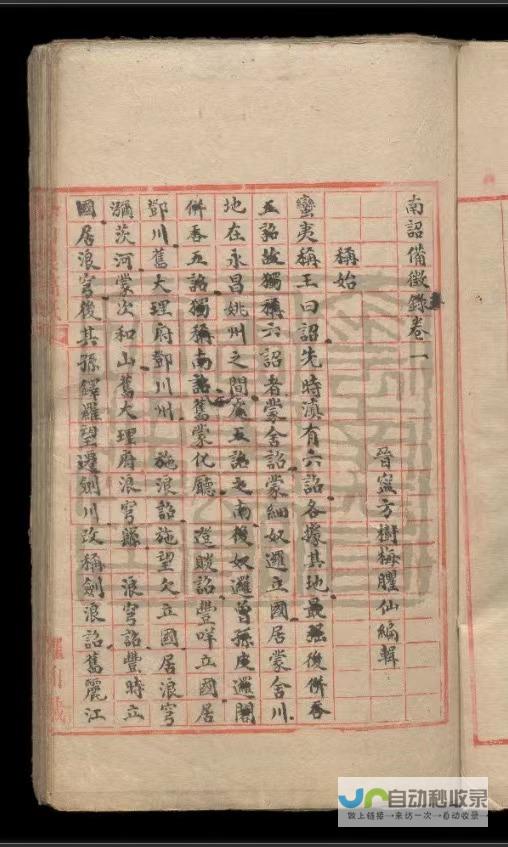 南詔備徵錄卷一
晉寧方樹梅臞仙編輯
稱始
蠻夷稱王曰詔先時滇有六詔各據其地最後併吞
五詔故獨稱六詔者蒙舍詔蒙細奴邏立國居蒙舍川
地在永昌姚州之間居五詔之南後奴邏曾孫皮邏閣
併吞五詔獨稱南詔舊蒙化廳 邆賧詔豐咩立國居
鄧川舊大理府鄧川州 施浪詔施望欠立國居浪穹
瀰茨河蒙次和山舊大理府浪穹縣 浪穹詔豐時立
國居浪穹後其孫鐸羅望遷劍川改稱劍浪詔舊麗江
自动秒收录
做上链接→来访一次→自动收录→